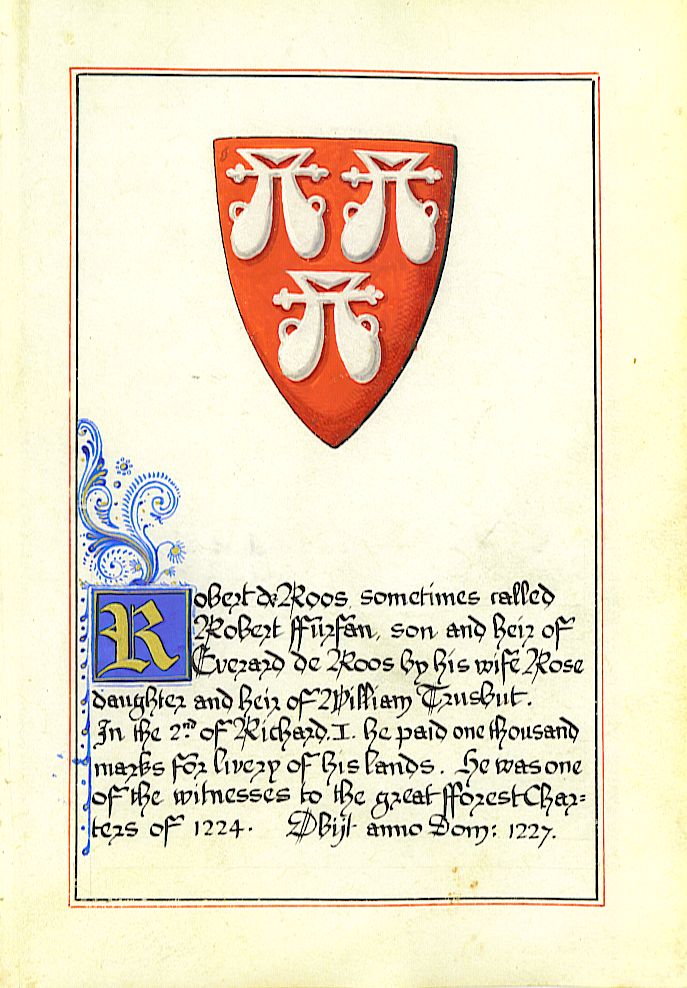 Robert de Roos, sometimes called
Robert ffurfan, son and heir of
Everard de Roos by his wife Rose
daughter and heir of William Trusbut.
In the 2nd of Richard. I. he paid one thousand
marks for livery of his lands. He was one
of the witnesses to the great fforest Char=
ters of 1224. Obijt anno Dom: 1227.